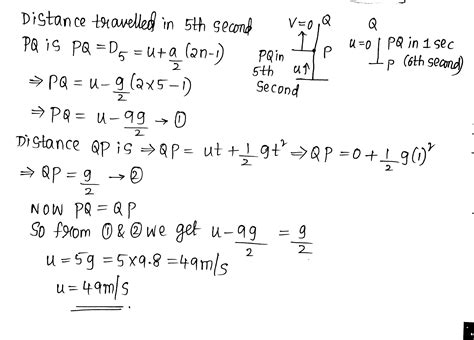 Distance travelled in 5th second
PQ is PQ = D₅ = u + a/2 (2n-1)
⇒ PQ = u - g/2 (2×5-1)
⇒ PQ = u - 9g/2 → ①
V=0 Q
PQ in 5th second
u↑
P
Q
u=0
PQ in 1 sec
P (6th seand)
Distance QP is ⇒ QP = ut + 1/2 gt² ⇒ QP = 0 + 1/2 g(1)²
⇒ QP = g/2 → ②
NOW PQ = QP
So from ① & ② we get u - 9g/2 = g/2
u = 5g = 5×9.8 = 49m/s
u = 49m/s.